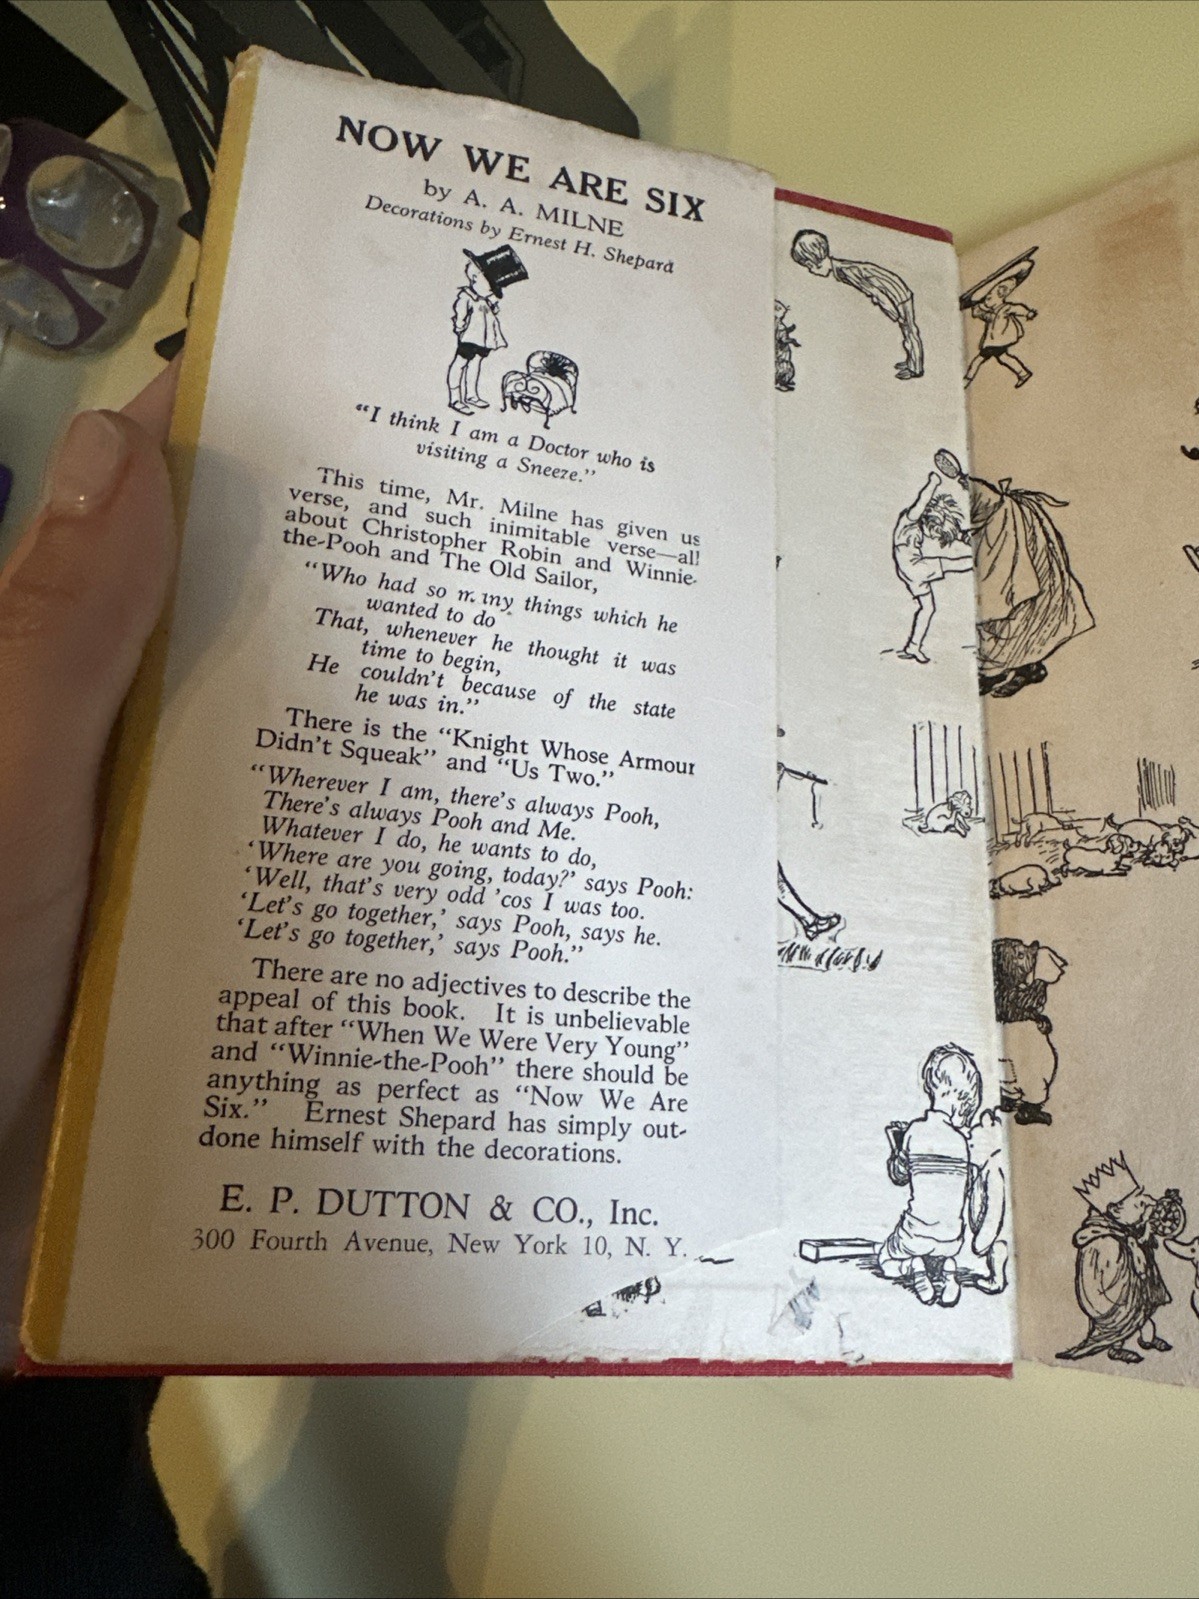 NOW WE ARE SIX
by A. A. MILNE
Decorations by Ernest H. Shepard
"I think I am a Doctor who is
visiting a Sneeze."
This time, Mr. Milne has given us
verse, and such inimitable verse—all
about Christopher Robin and Winnie-
the-Pooh and The Old Sailor,
"Who had so many things which he
wanted to do
That, whenever he thought it was
time to begin,
He couldn't because of the state
he was in."
There is the "Knight Whose Armour
Didn't Squeak" and "Us Two."
"Wherever I am, there's always Pooh,
There's always Pooh and Me.
Whatever I do, he wants to do,
'Where are you going, today?' says Pooh:
'Well, that's very odd 'cos I was too.
'Let's go together,' says Pooh, says he.
'Let's go together,' says Pooh."
There are no adjectives to describe the
appeal of this book. It is unbelievable
that after "When We Were Very Young"
and "Winnie-the-Pooh" there should be
anything as perfect as "Now We Are
Six." Ernest Shepard has simply out-
done himself with the decorations.
E. P. DUTTON & CO., Inc.
300 Fourth Avenue, New York 10, N. Y.